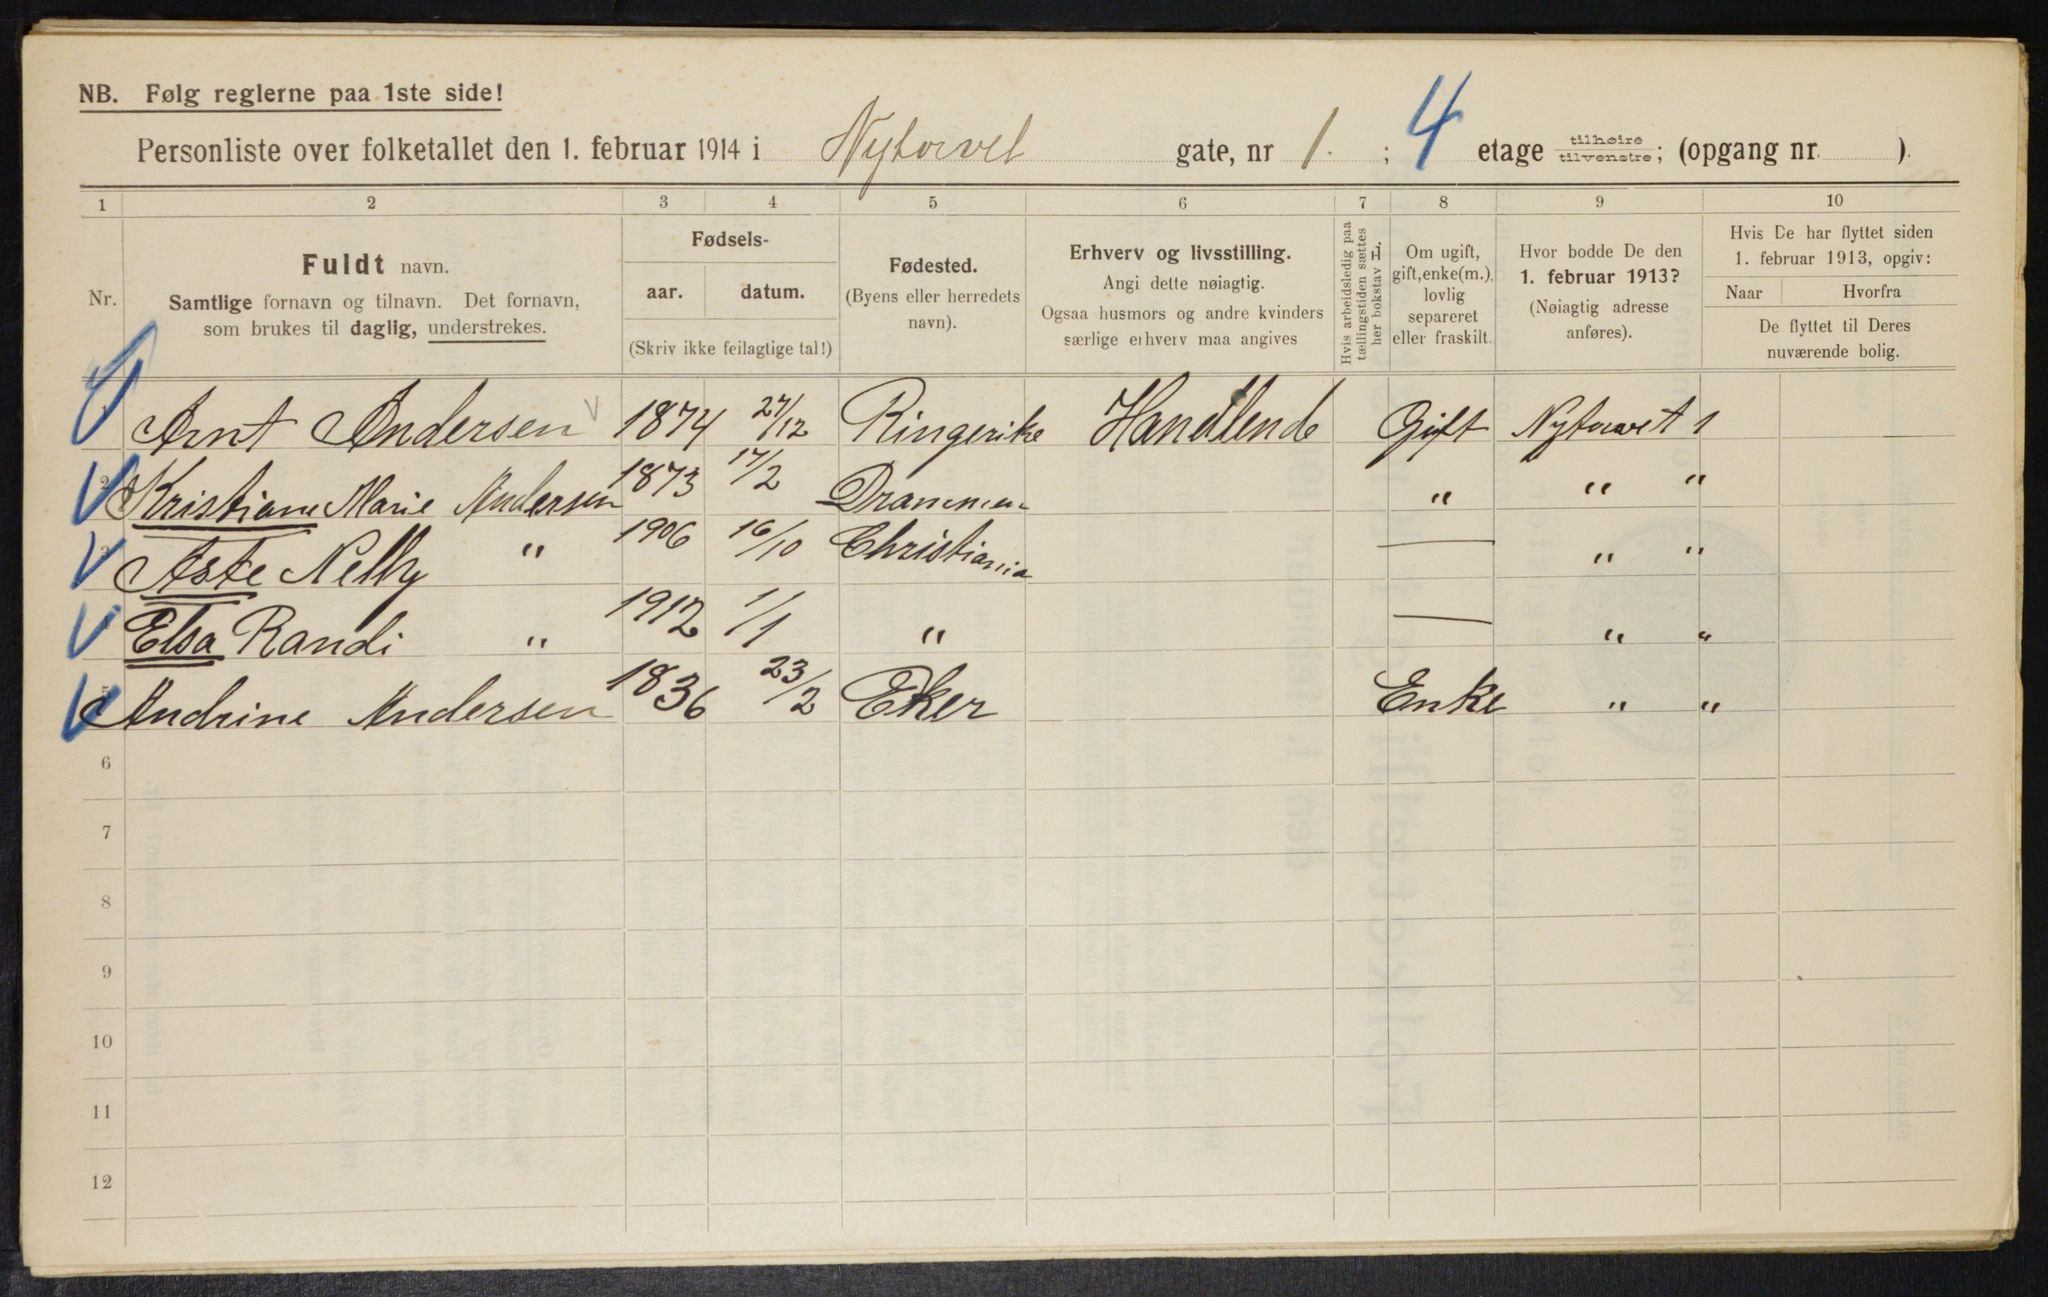 NB. Følg reglerne paa 1ste side!
Personliste over folketallet den 1. februar 1914 i Nytorvet gate, nr 1. ; 4 etage tilhøire/tilvenstre; (opgang nr. ).
1 2 3 4 5 6 7 8 9 10
Nr.
Fuldt navn.
Samtlige fornavn og tilnavn. Det fornavn,
som brukes til daglig, understrekes.
Fødsels-
aar. datum.
(Skriv ikke feilagtige tal!)
Fødested.
(Byens eller herredets
navn).
Erhverv og livsstilling.
Angi dette nøiagtig.
Ogsaa husmors og andre kvinders
særlige erhverv maa angives
Hvis arbeidsledig paa
tællingstiden sættes
her bokstav L.
Om ugift,
gift, enke(m.),
lovlig
separeret
eller fraskilt.
Hvor bodde De den
1. februar 1913?
(Nøiagtig adresse
anføres).
Hvis De har flyttet siden
1. februar 1913, opgiv:
Naar Hvorfra
De flyttet til Deres
nuværende bolig.
Arnt Andersen 1874 27/12 Ringerike Handlende Gift Nytorvet 1
Kristiane Marie Andersen 1873 17/2 Drammen " " "
Aste Nelly " 1906 16/10 Christiania — " "
Elsa Randi " 1912 1/1 " — " "
Andrine Andersen 1836 23/2 Eker Enke " "
6
7
8
9
10
11
12